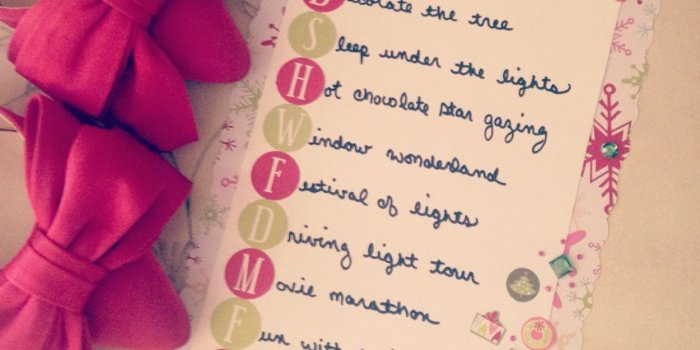 Decorate the tree
Sleep under the lights
Hot chocolate star gazing
Window wonderland
Festival of lights
Driving light tour
Movie marathon
Fun with